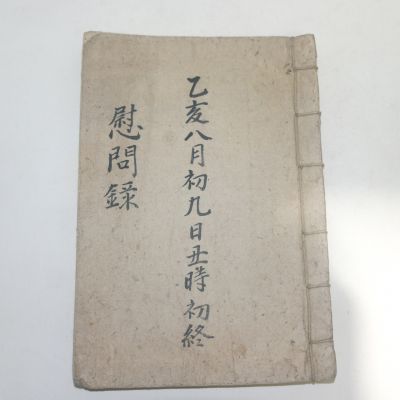 乙亥八月初九日丑時初終
慰問錄